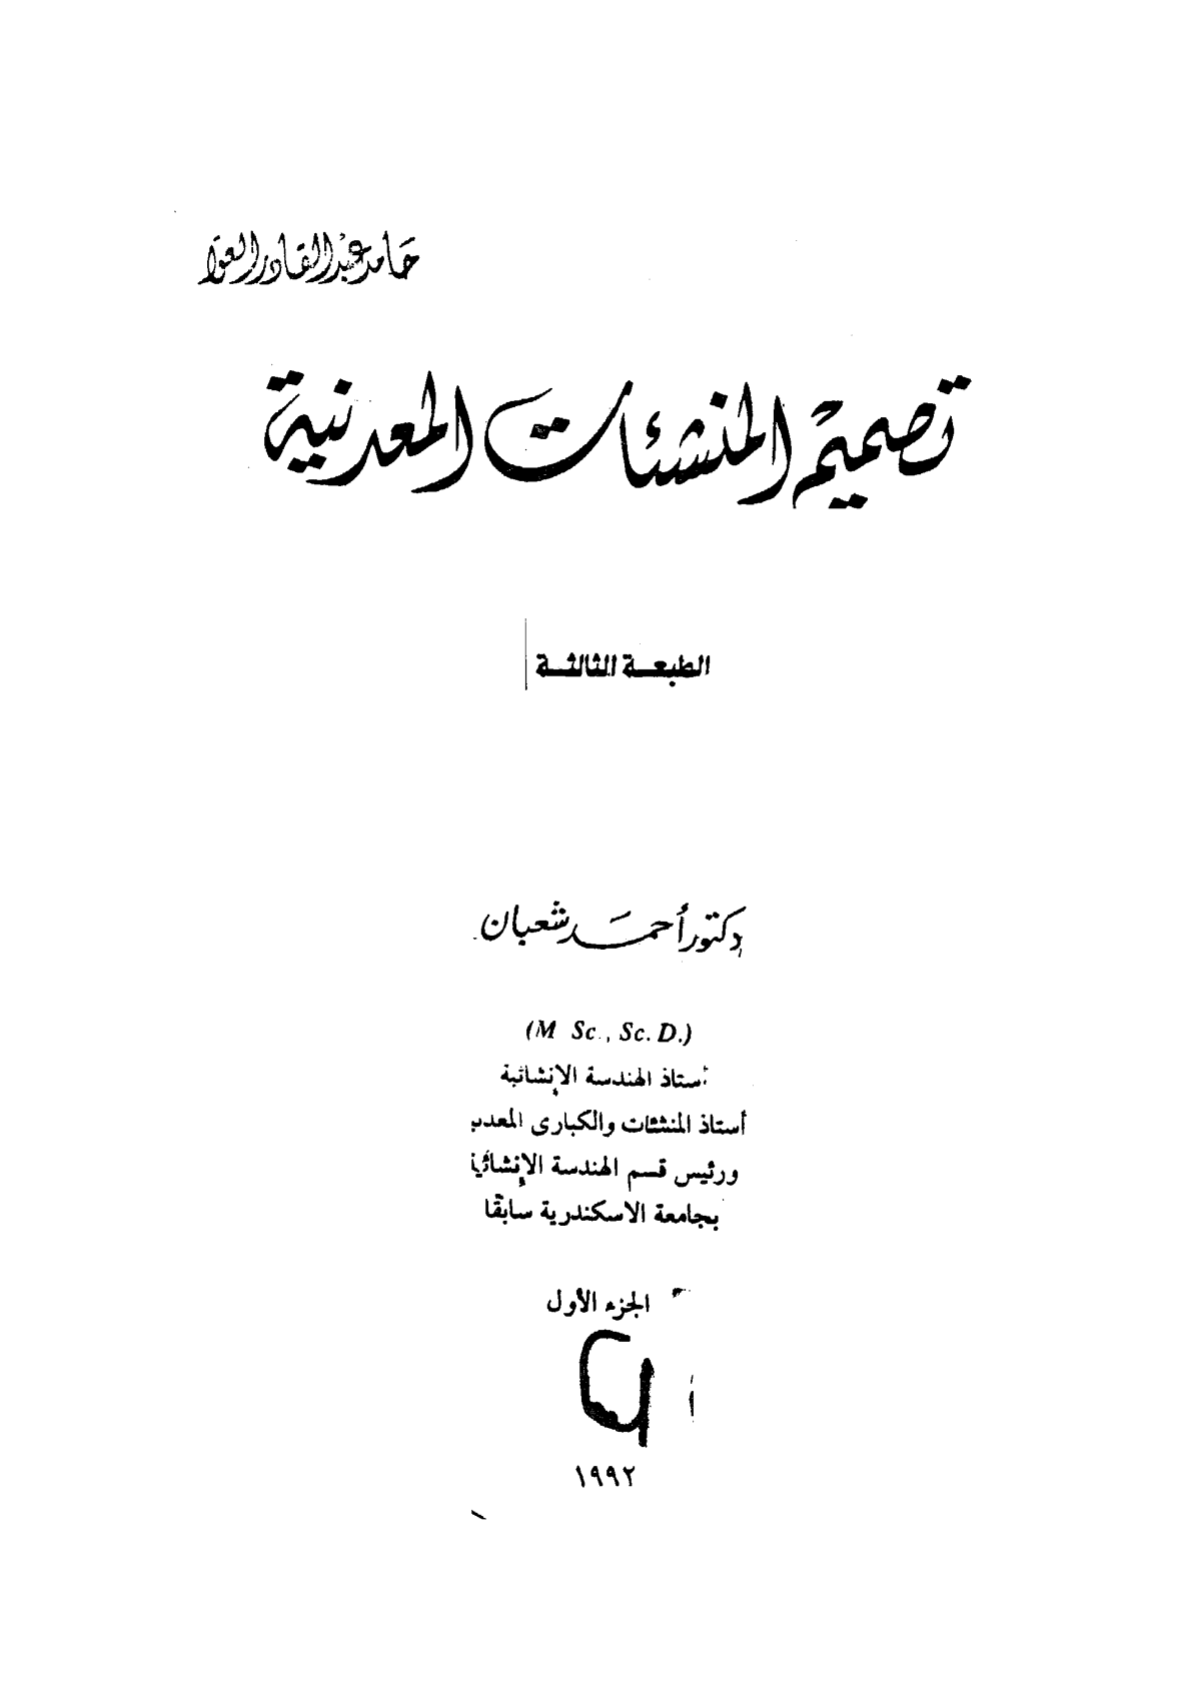 حامد عبد القادر العولا
تصميم المنشئات المعدنية
الطبعة الثالثة
دكتور أحمد شعبان
(M Sc., Sc. D.)
أستاذ الهندسة الإنشائية
أستاذ المنشئات والكبارى
ورئيس قسم الهندسة الإنشائية
بجامعة الاسكندرية سابقا
الجزء الأول
١٩٩٢